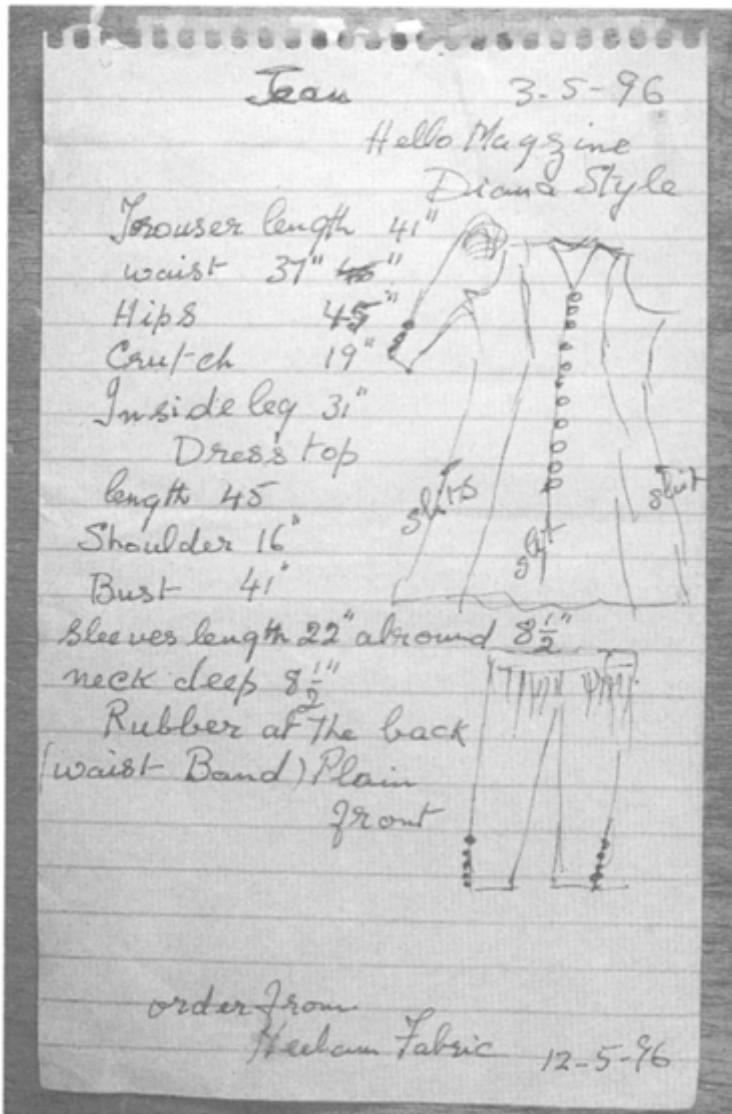 Jean 3-5-96
Hello Magzine
Diana Style
Trouser length 41"
waist 37"
Hips 45"
Crutch 19"
Inside leg 31"
Dress top
length 45
Shoulder 16"
Bust 41"
Sleeves length 22" abround 8 1/2"
neck deep 8 1/2"
Rubber at the back
(waist Band) Plain
front
slits
slit
slit
order from
Fabric 12-5-96